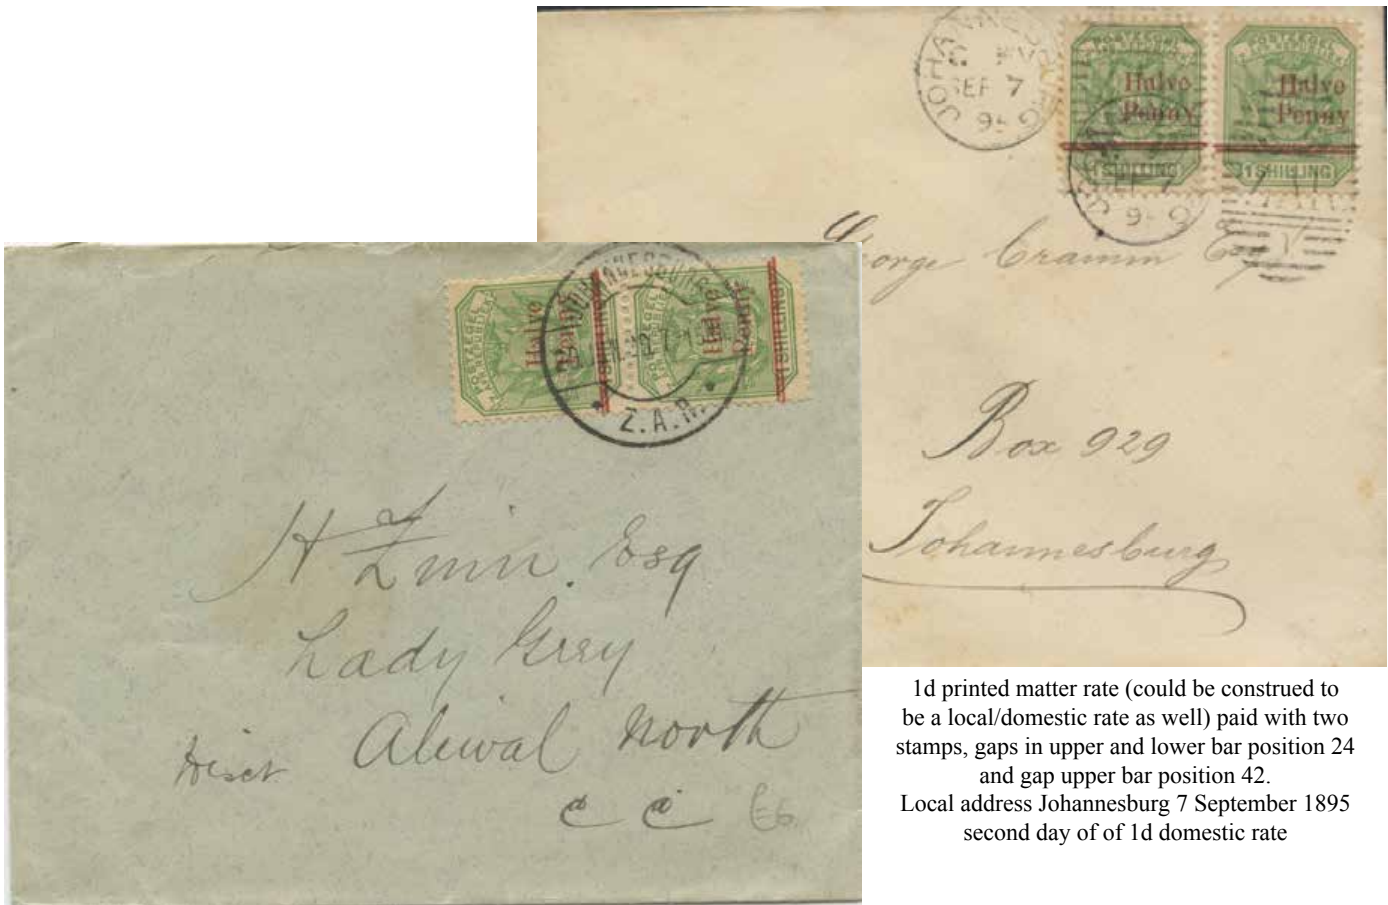 JOHANNESBURG
SEP 7
95
POSTZEGEL
Halve
Penny
1 SHILLING
POSTZEGEL
Halve
Penny
1 SHILLING
SEP 7
95
George Cramm Esq
Box 929
Johannesburg
POSTZEGEL
Halve
Penny
SHILLING
POSTZEGEL
Halve
Penny
SHILLING
JOHANNESBURG
Z.A.R.
H Zinn. Esq
Lady Grey
Disct Aliwal North
C C
1d printed matter rate (could be construed to
be a local/domestic rate as well) paid with two
stamps, gaps in upper and lower bar position 24
and gap upper bar position 42.
Local address Johannesburg 7 September 1895
second day of of 1d domestic rate